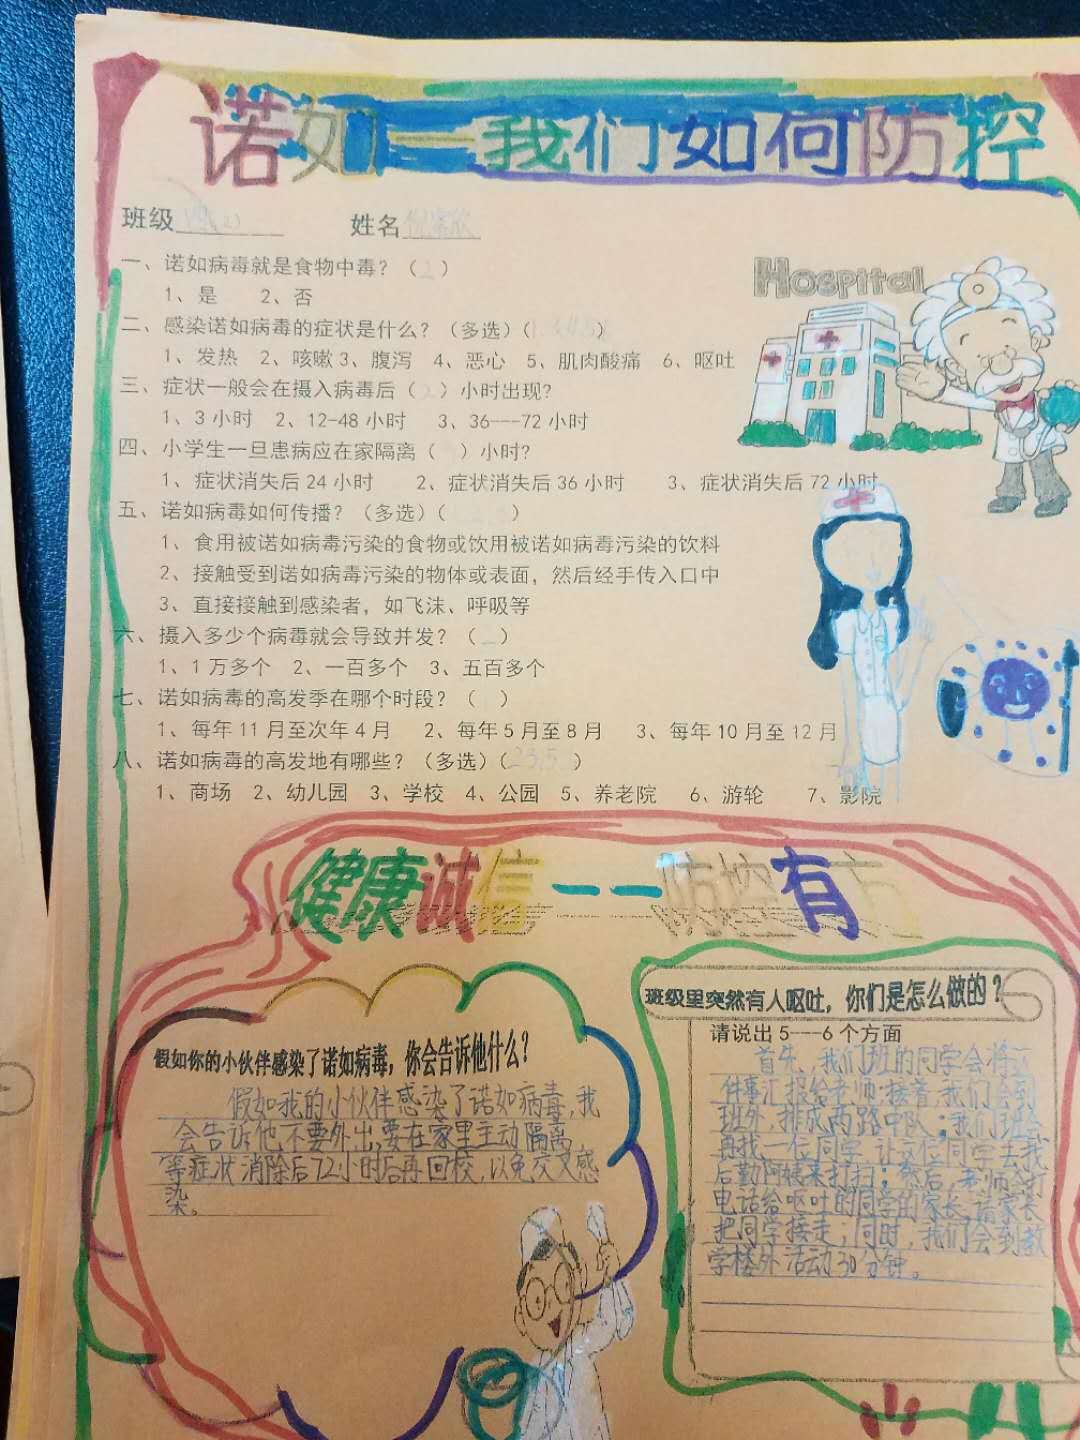 诺如一我们如何防控
班级 姓名
一、诺如病毒就是食物中毒？（2）
1、是 2、否
Hospital
二、感染诺如病毒的症状是什么？（多选）（ ）
1、发热 2、咳嗽 3、腹泻 4、恶心 5、肌肉酸痛 6、呕吐
三、症状一般会在摄入病毒后（2）小时出现？
1、3 小时 2、12-48 小时 3、36---72 小时
四、小学生一旦患病应在家隔离（ ）小时？
1、症状消失后 24 小时 2、症状消失后 36 小时 3、症状消失后 72 小时
五、诺如病毒如何传播？（多选）（ ）
1、食用被诺如病毒污染的食物或饮用被诺如病毒污染的饮料
2、接触受到诺如病毒污染的物体或表面，然后经手传入口中
3、直接接触到感染者，如飞沫、呼吸等
六、摄入多少个病毒就会导致并发？（ ）
1、1 万多个 2、一百多个 3、五百多个
七、诺如病毒的高发季在哪个时段？（ ）
1、每年 11 月至次年 4 月 2、每年 5 月至 8 月 3、每年 10 月至 12 月
八、诺如病毒的高发地有哪些？（多选）（ ）
1、商场 2、幼儿园 3、学校 4、公园 5、养老院 6、游轮 7、影院
健康诚信一一防控有方
假如你的小伙伴感染了诺如病毒，你会告诉他什么？
假如我的小伙伴感染了诺如病毒，我
会告诉他，不要外出，要在家里主动隔离，
等症状消除后72小时后再回校，以免交叉感
染。
班级里突然有人呕吐，你们是怎么做的？
请说出 5---6 个方面
首先，我们班的同学会将这
件事汇报给老师；接着，我们会到
班外，排成两路中队；我们班会
再找一位同学，让这位同学去找
后勤阿姨来打扫；然后，老师会打
电话给呕吐的同学的家长，请家长
把同学接走；同时，我们会到教
学楼外活动30分钟。